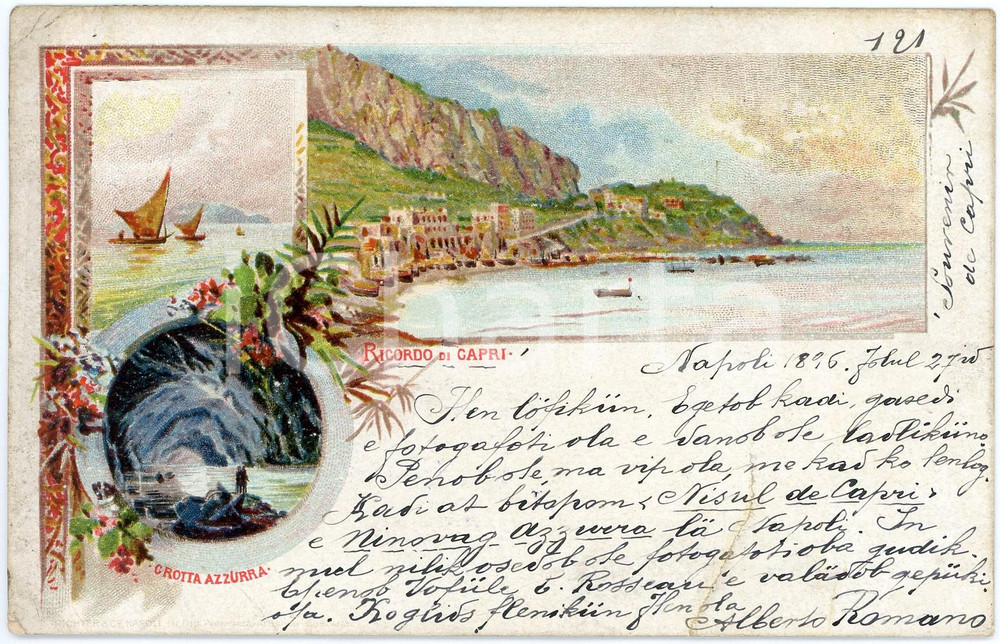 121
Souvenir
de Capri
RICORDO DI CAPRI.
GROTTA AZZURRA.
Napoli 1896. 27id
Hen löfikün. Egetob kadi, gasedi
e fotogafoti ola e danobole ladliküno.
Penobole, ma vip ola, me kad ko penlog.
Kadi at bitapom "Nisul de Capri"
e Ninovag Azzurra lä Napoli. In
mul nilik osedobole fotogafoti oba gudik.
Epenob Vofüle e valadob gepüki
ofa. Kogivös flenikün
Alberto Romano